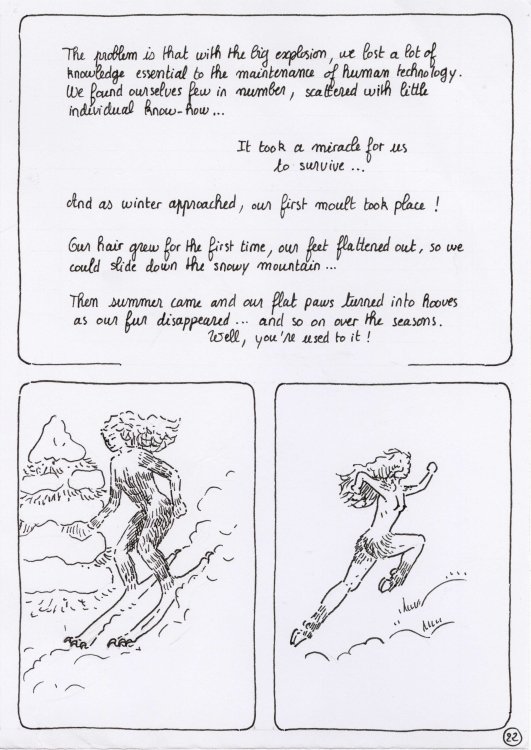 The problem is that with the big explosion, we lost a lot of
knowledge essential to the maintenance of human technology.
We found ourselves few in number, scattered with little
individual know-how...
It took a miracle for us
to survive...
And as winter approached, our first moult took place !
Our hair grew for the first time, our feet flattened out, so we
could slide down the snowy mountain...
Then summer came and our flat paws turned into hooves
as our fur disappeared... and so on over the seasons.
Well, you're used to it !
22